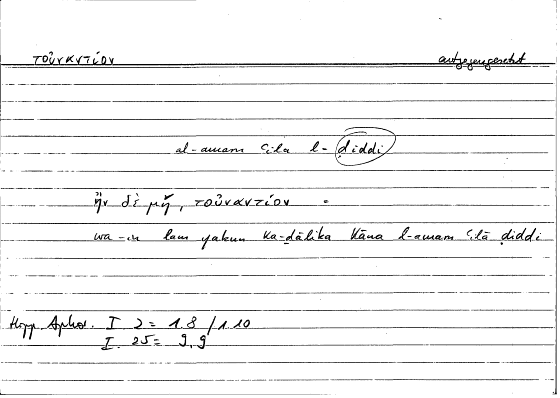 τοὐναντίον entgegengesetzt
al-amam ʿila l-ḍiddi
ἢν δὲ μὴ, τοὐναντίον =
wa-in lam yakun ka-ḏālika kāna l-amam ʿilā ḍiddi
Hipp. Aphor. I 2 = 1.8 / 1.10
I. 25 = 9,9